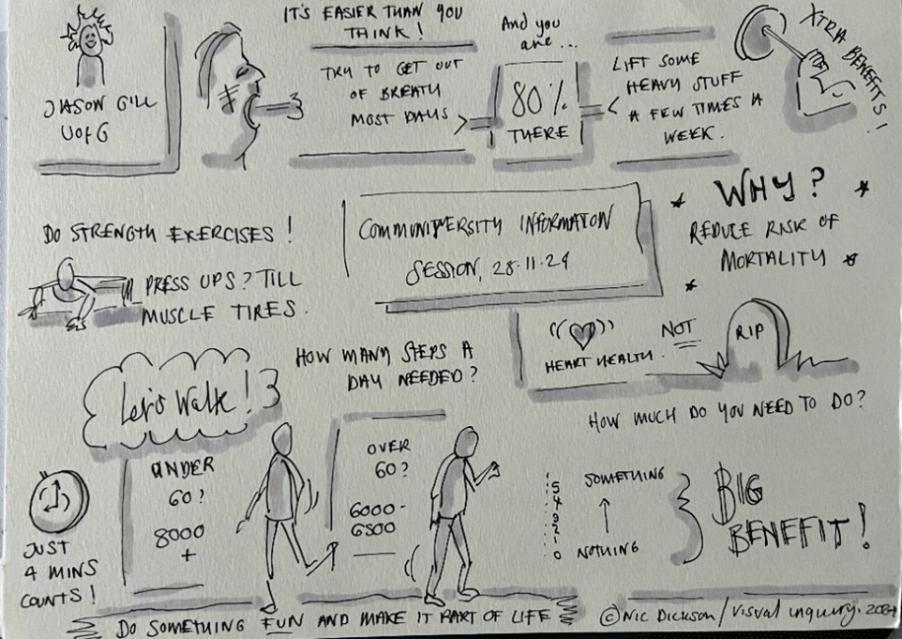 JASON GILL
UofG
IT'S EASIER THAN YOU
THINK!
TRY TO GET OUT
OF BREATH
MOST DAYS
And you
are...
80%
THERE
LIFT SOME
HEAVY STUFF
A FEW TIMES A
WEEK.
XTRA BENEFITS!
DO STRENGTH EXERCISES!
PRESS UPS? TILL
MUSCLE TIRES.
COMMUNIVERSITY INFORMATION
SESSION, 28.11.24
WHY?
REDUCE RISK OF
MORTALITY
HEART HEALTH. NOT
RIP
Let's Walk!
HOW MANY STEPS A
DAY NEEDED?
UNDER
60?
8000
+
OVER
60?
6000-
6500
JUST
4 MINS
COUNTS!
HOW MUCH DO YOU NEED TO DO?
5
4
3
2
1
0
SOMETHING
NOTHING
BIG
BENEFIT!
DO SOMETHING FUN AND MAKE IT PART OF LIFE
© Nic Dickson / visual inquiry. 2024